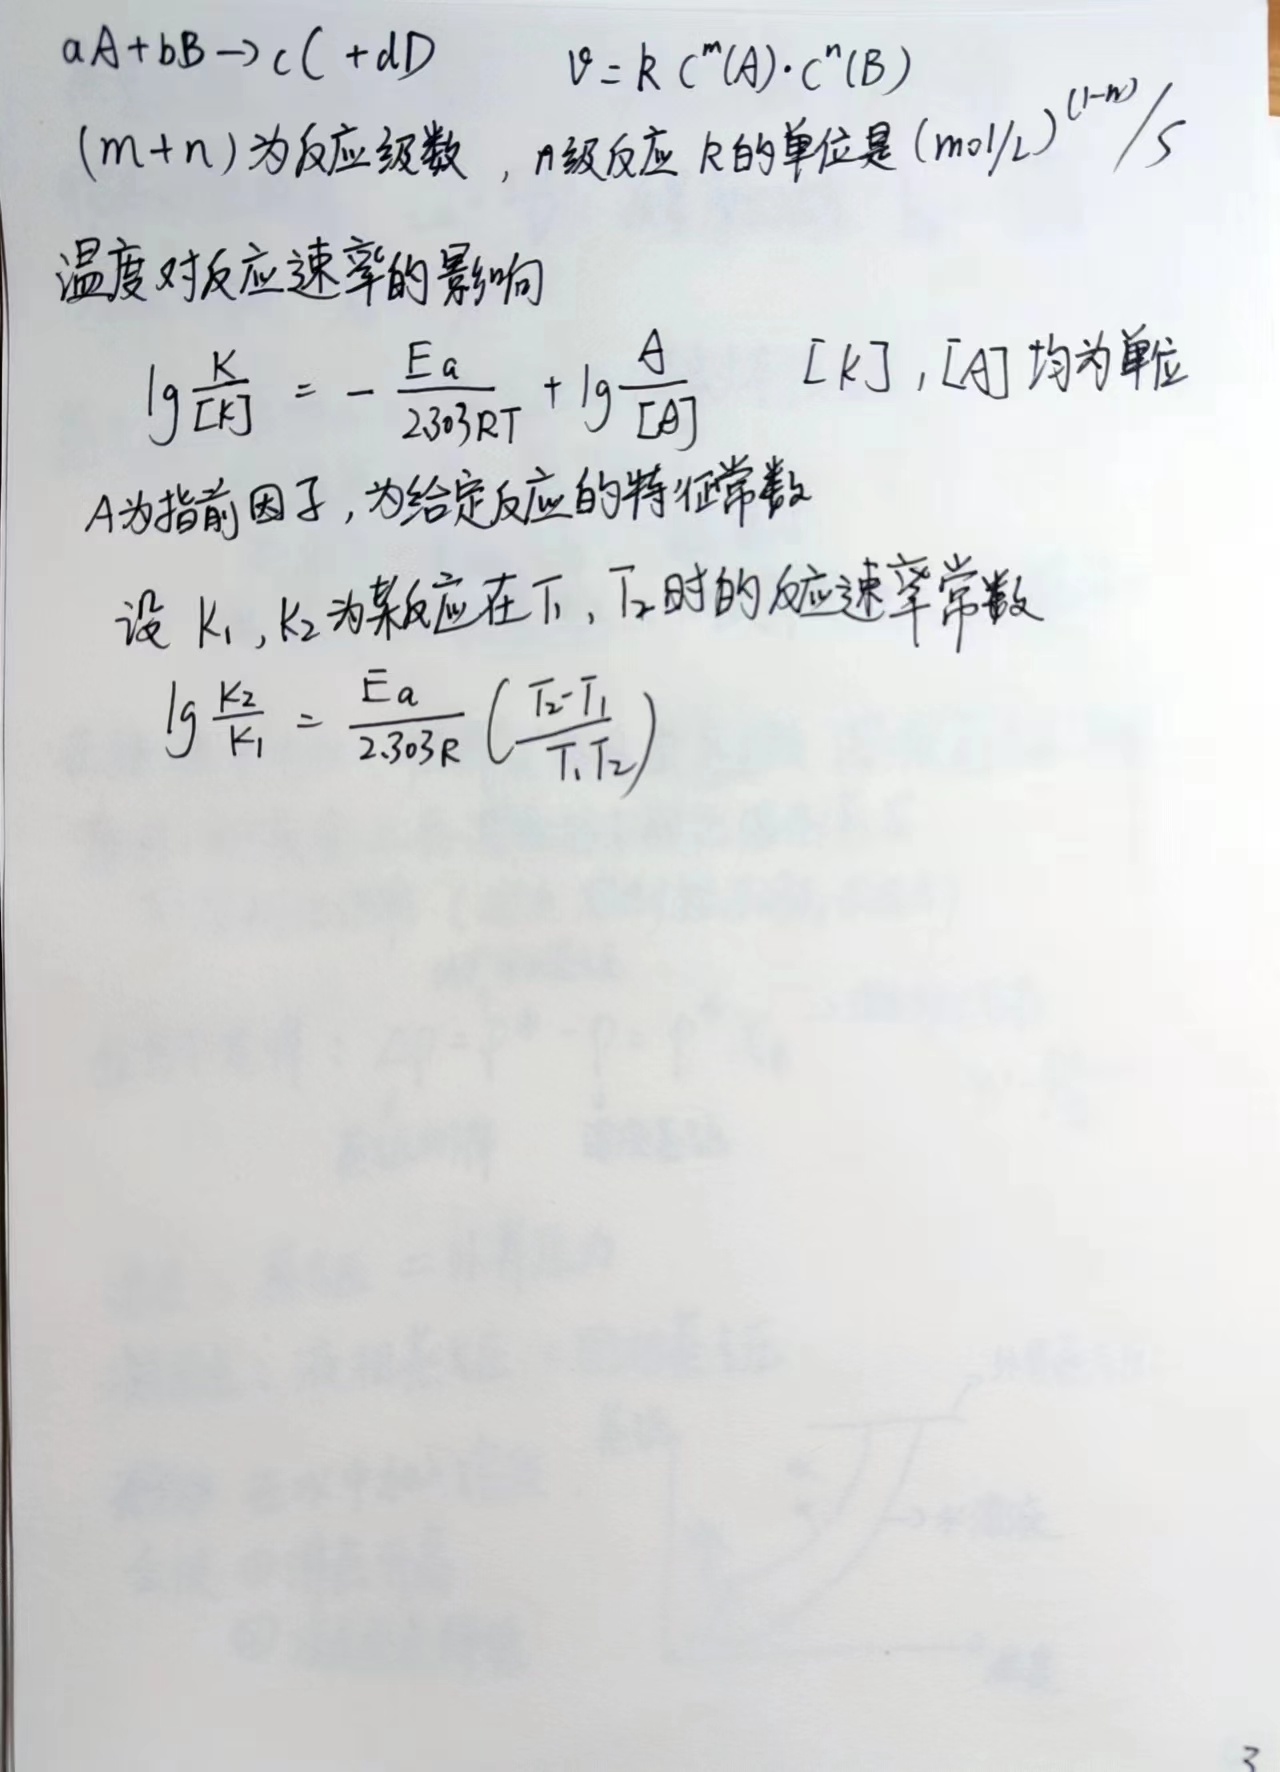 aA+bB→cC+dD  v=k cᵐ(A)·cⁿ(B)
(m+n)为反应级数，n级反应 k的单位是(mol/L)⁽¹⁻ⁿ⁾/s
温度对反应速率的影响
lg K/[K] = - Ea/2.303RT + lg A/[A]  [K]，[A]均为单位
A为指前因子，为给定反应的特征常数
设 K₁，K₂为某反应在T₁、T₂时的反应速率常数
lg K₂/K₁ = Ea/2.303R (T₂-T₁/T₁T₂)
3